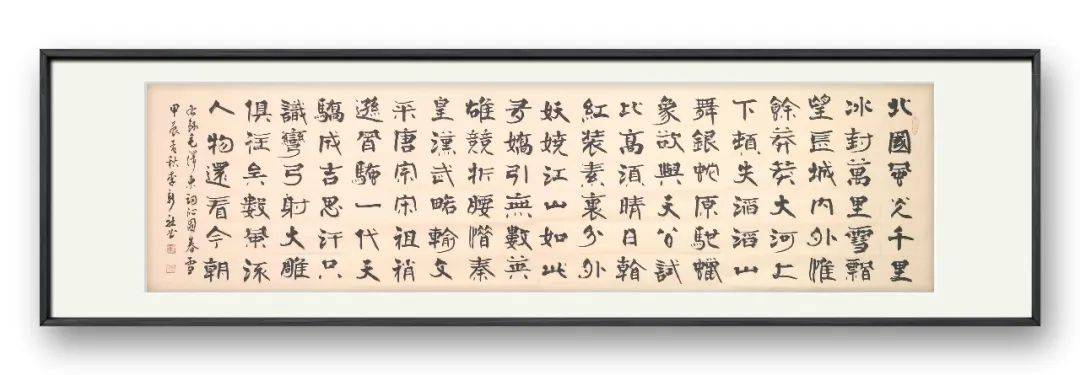 北國風光千里
冰封萬里雪飄
望長城內外惟
餘莽莽大河上
下頓失滔滔山
舞銀蛇原馳蠟
象欲與天公試
比高須晴日看
紅裝素裹分外
妖嬈江山如此
多嬌引無數英
雄競折腰惜秦
皇漢武略輸文
采唐宗宋祖稍
遜風騷一代天
驕成吉思汗只
識彎弓射大雕
俱往矣數風流
人物還看今朝
錄毛澤東詞沁園春雪
甲辰秋李書